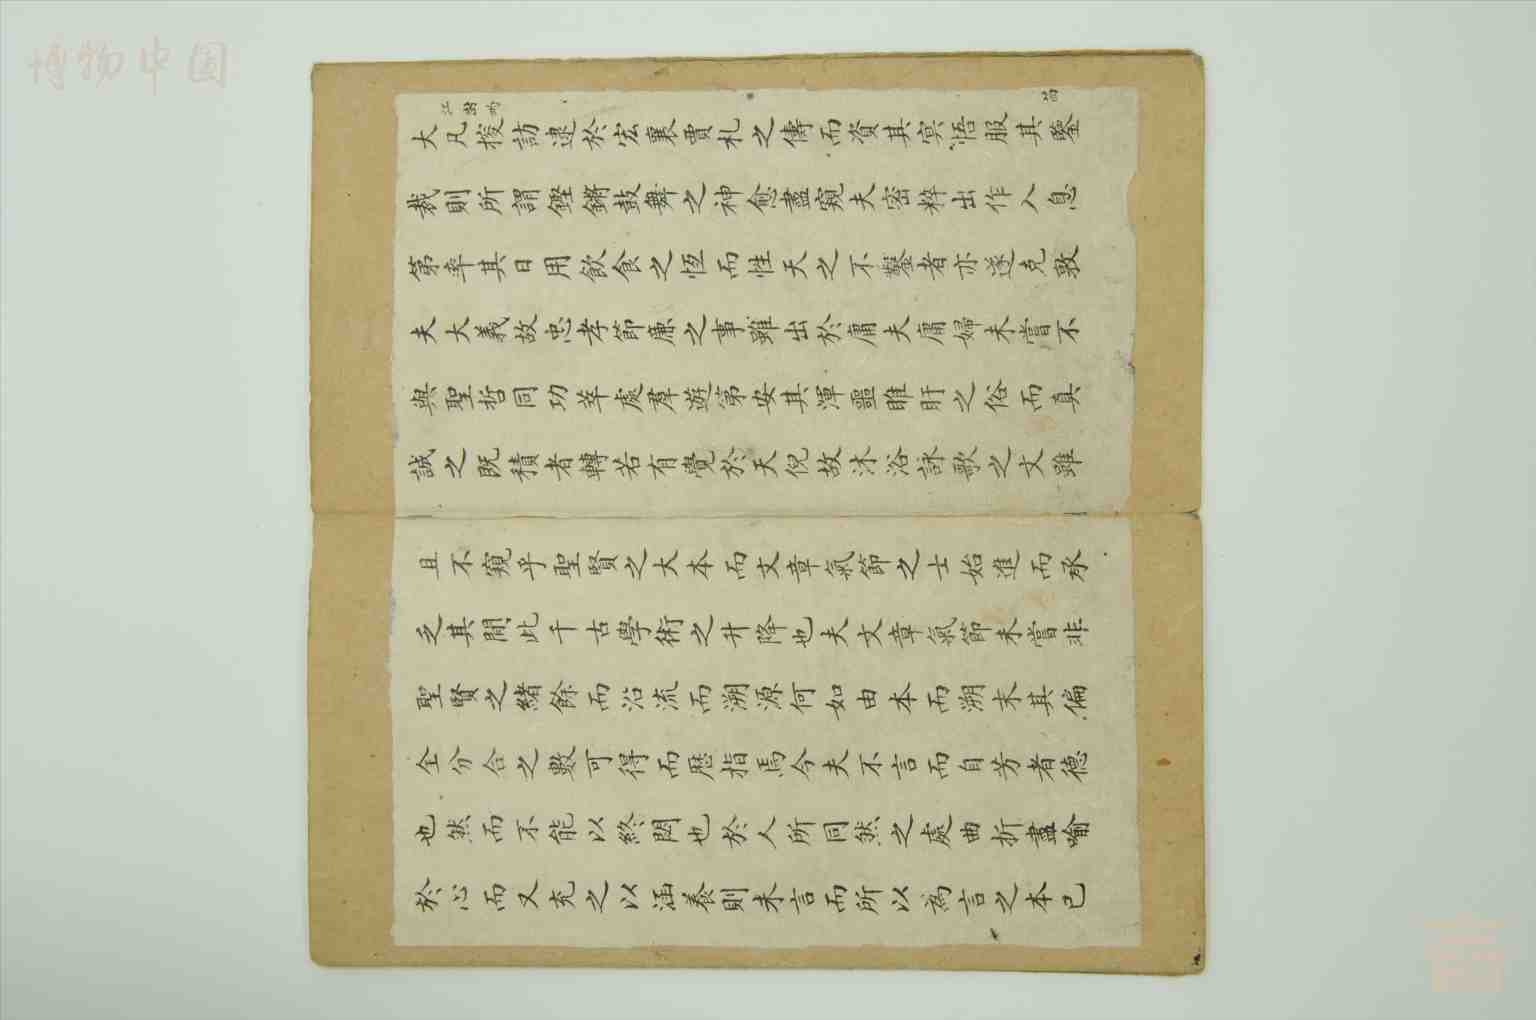 博物中国
大凡按訪逮於宏襄賈札之儔而資其寔悟服其鑒
裁則所謂鏗鏘鼓舞之神愈盡窺夫密粹出作入息
第率其日用飲食之恆而性天之不鑿者亦遂克敦
夫大義故忠孝節廉之事雖出於庸夫庸婦未嘗不
與聖哲同功萃處羣遊第安其渾噩睢盱之俗而真
誠之既積者轉若有覺於天倪故沐浴詠歌之文雖
且不窺乎聖賢之大本而文章氣節之士始進而承
乏其間此千古學術之升降也夫文章氣節未嘗非
聖賢之緒餘而沿流而溯源何如由本而溯末其偏
全分合之數可得而歷指焉今夫不言而自芳者德
也然而不能以終閟也於人所同然之處曲折盡喻
於心而又充之以涵養則未言而所以為言之本已